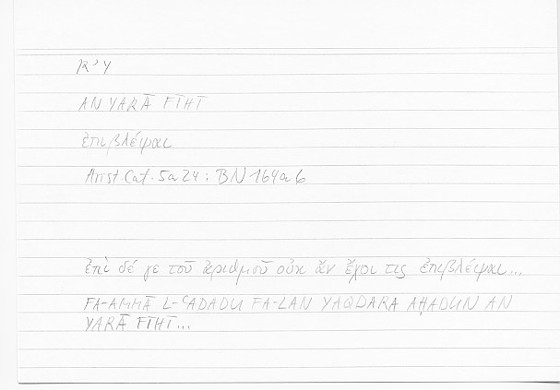 R'Y
AN YARĀ FĪHĪ
ἐπιβλέψαι
Arist. Cat. 5a24 : BN 164a6
ἐπὶ δέ γε τοῦ ἀριθμοῦ οὐκ ἂν ἔχοι τις ἐπιβλέψαι...
FA-AMMĀ L-ʿADADU FA-LAN YAQDARA AḤADUN AN
YARĀ FĪHĪ...